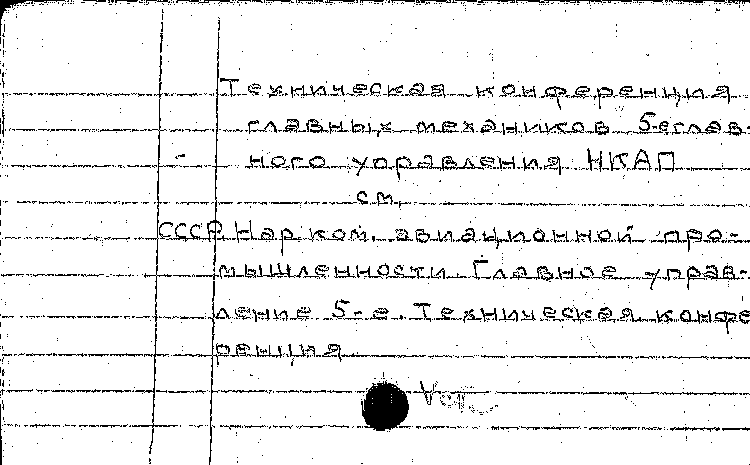 Техническая конференция
главных механиков 5-еглав-
ного управления НКАП
см.
СССР. Нарком. авиационной про-
мышленности. Главное управ-
ление 5-е. Техническая конфе
ренция